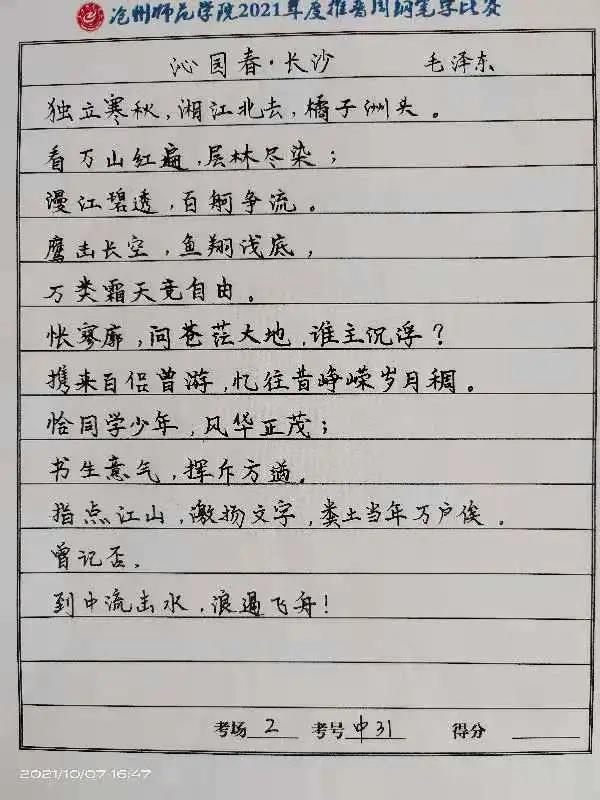 沧州师范学院2021年度推普周钢笔字比赛
沁园春·长沙 毛泽东
独立寒秋,湘江北去,橘子洲头。
看万山红遍,层林尽染;
漫江碧透,百舸争流。
鹰击长空,鱼翔浅底,
万类霜天竞自由。
怅寥廓,问苍茫大地,谁主沉浮?
携来百侣曾游,忆往昔峥嵘岁月稠。
恰同学少年,风华正茂;
书生意气,挥斥方遒。
指点江山,激扬文字,粪土当年万户侯。
曾记否,
到中流击水,浪遏飞舟!
考场 2 考号 中31 得分
2021/10/07 16:47